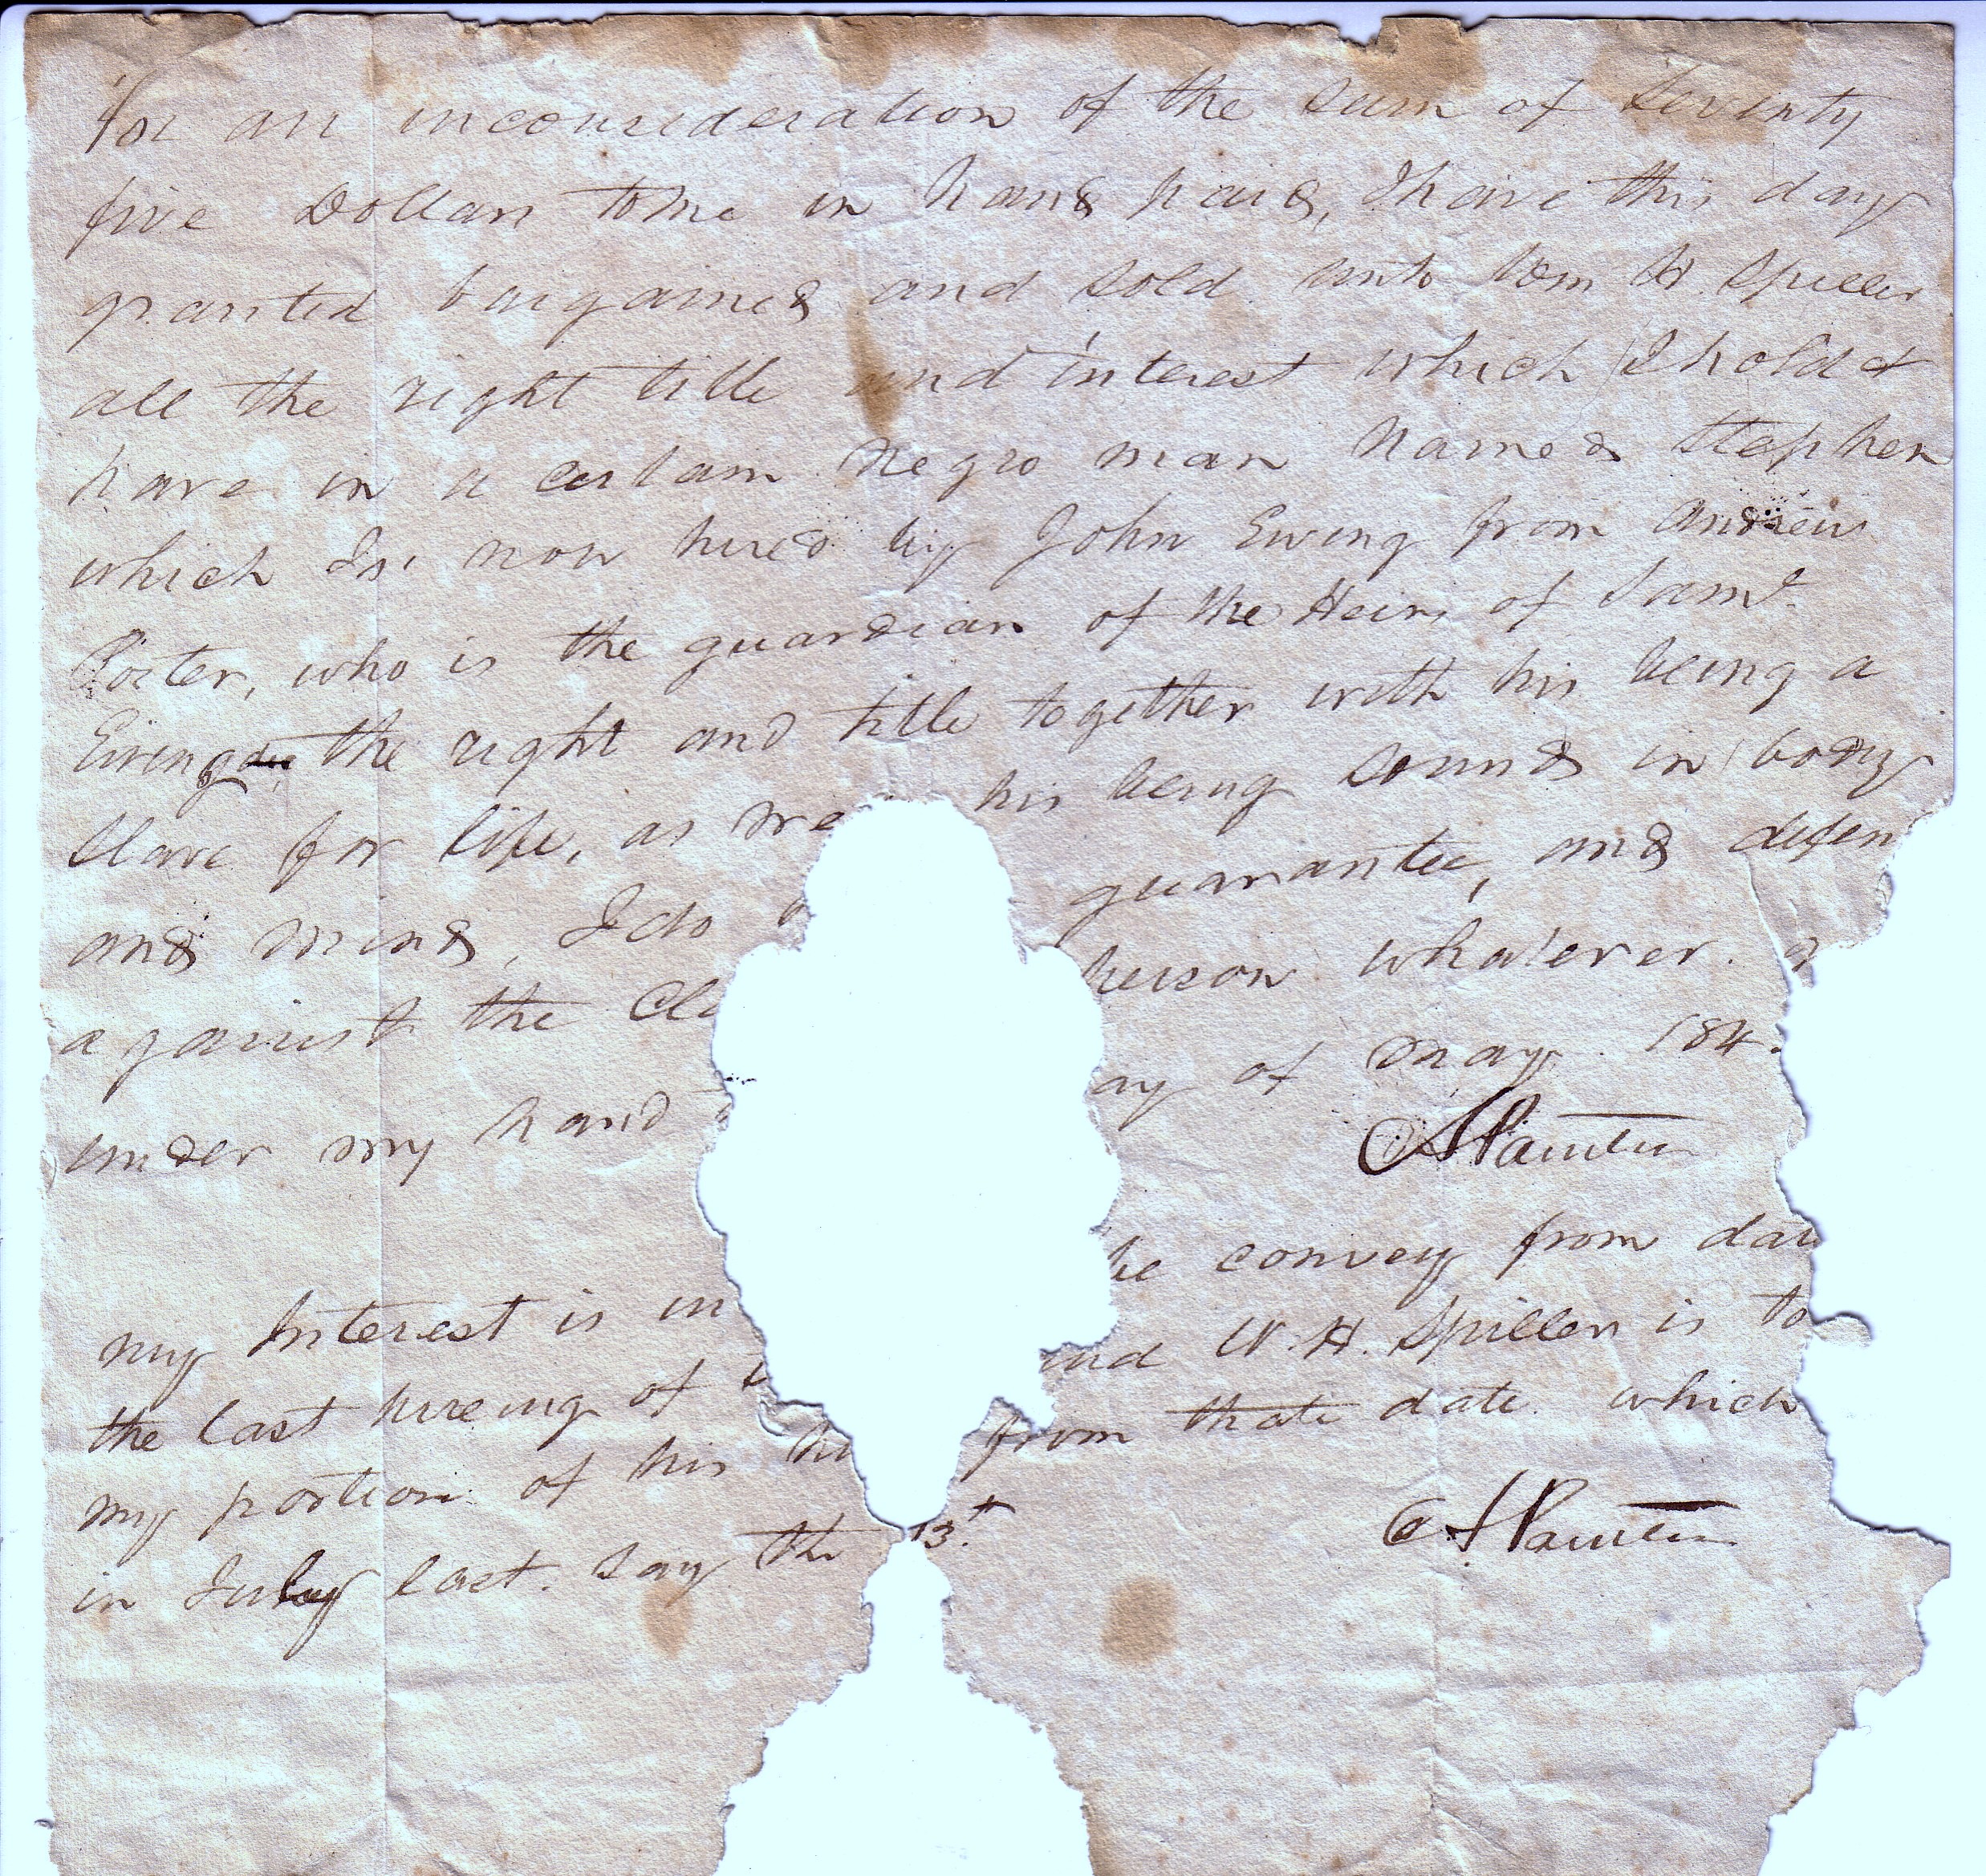 for an inconsideration of the sum of Seventy
five Dollars to me in hand paid, I have this day
granted bargained and sold unto Wm H. Spiller
all the right title and interest which I hold &
have in a certain Negro man named Stephen
which Is now hired by John Ewing from Andrew
Porter, who is the guardian of the Heirs of Saml
Ewing the right and title together with his being a
Slave for life, as we his being sound in body
and mind, I do guarantee, and defen
against the Cla person whatever.
under my hand ay of May 184
my Interest is in be convey from
the last hireing of and W. H. Spiller is to
my portion of his hi from that date which
in July last. Say the 13th